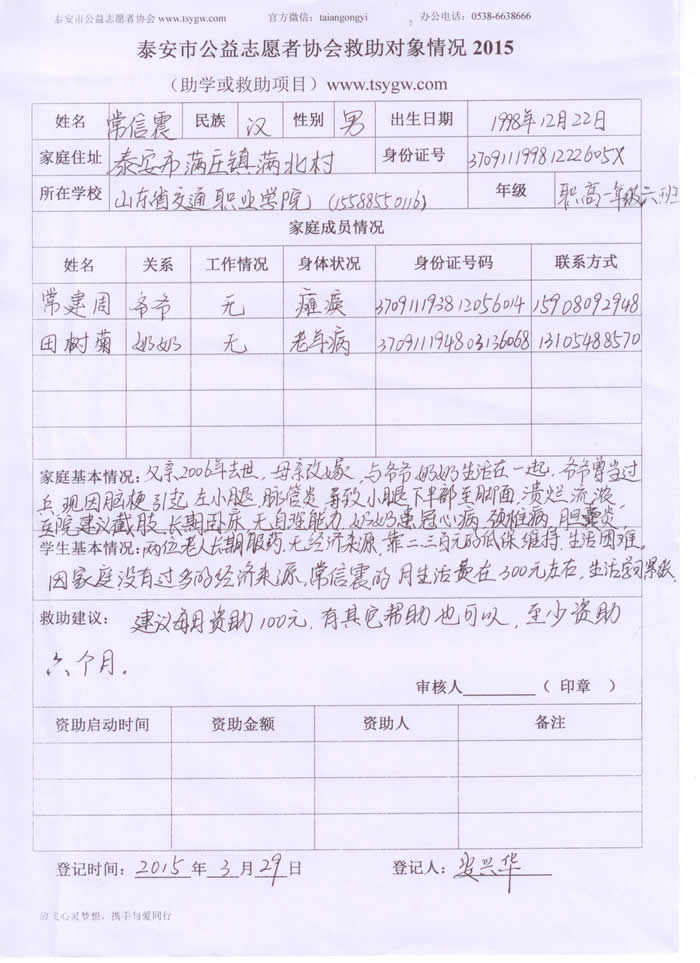 泰安市公益志愿者协会 www.tsygw.com 官方微信：taiangongyi ，办公电话：0538-6638666
泰安市公益志愿者协会救助对象情况 2015
（助学或救助项目）www.tsygw.com
姓名 常信震 民族 汉 性别 男 出生日期 1998年12月22日
家庭住址 泰安市满庄镇满北村 身份证号 37091119981222605X
所在学校 山东省交通职业学院 (15588550116) 年级 职高一年级六班
家庭成员情况
姓名 关系 工作情况 身体状况 身份证号码 联系方式
常建周 爷爷 无 瘫痪 370911193812056014 15908092948
田树菊 奶奶 无 老年病 370911194803136068 13105488570
家庭基本情况：父亲2006年去世，母亲改嫁，与爷爷奶奶生活在一起，爷爷曾当过
兵，现因脑梗引起左小腿，脉管炎，导致小腿下半部至脚面，溃烂流液，
医院建议截肢，长期卧床，无自理能力，奶奶患冠心病，颈椎病，胆囊炎，
学生基本情况：两位老人长期服药，无经济来源，靠二、三百元的低保维持，生活困难。
因家庭没有过多的经济来源，常信震的月生活费在300元左右，生活学习紧张，
救助建议：建议每月资助100元，有其它帮助也可以，至少资助
六个月。
审核人 （ 印章 ）
资助启动时间 资助金额 资助人 备注
登记时间：2015年3月29日 登记人：安兴华
放飞心灵梦想，携手与爱同行